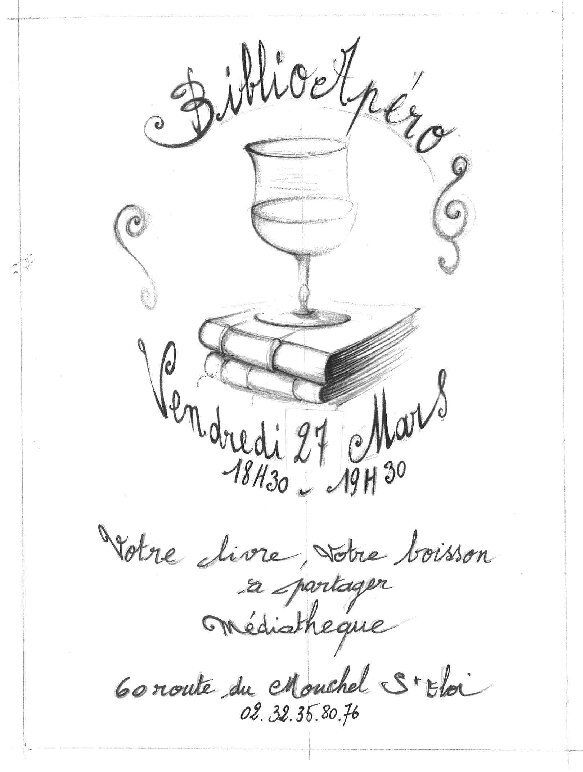 BiblioApéro
Vendredi 27 MarS
18H30 - 19H30
Votre livre, Votre boisson
à partager
Médiathèque
60 route du Mouchel St Eloi
02.32.35.80.76